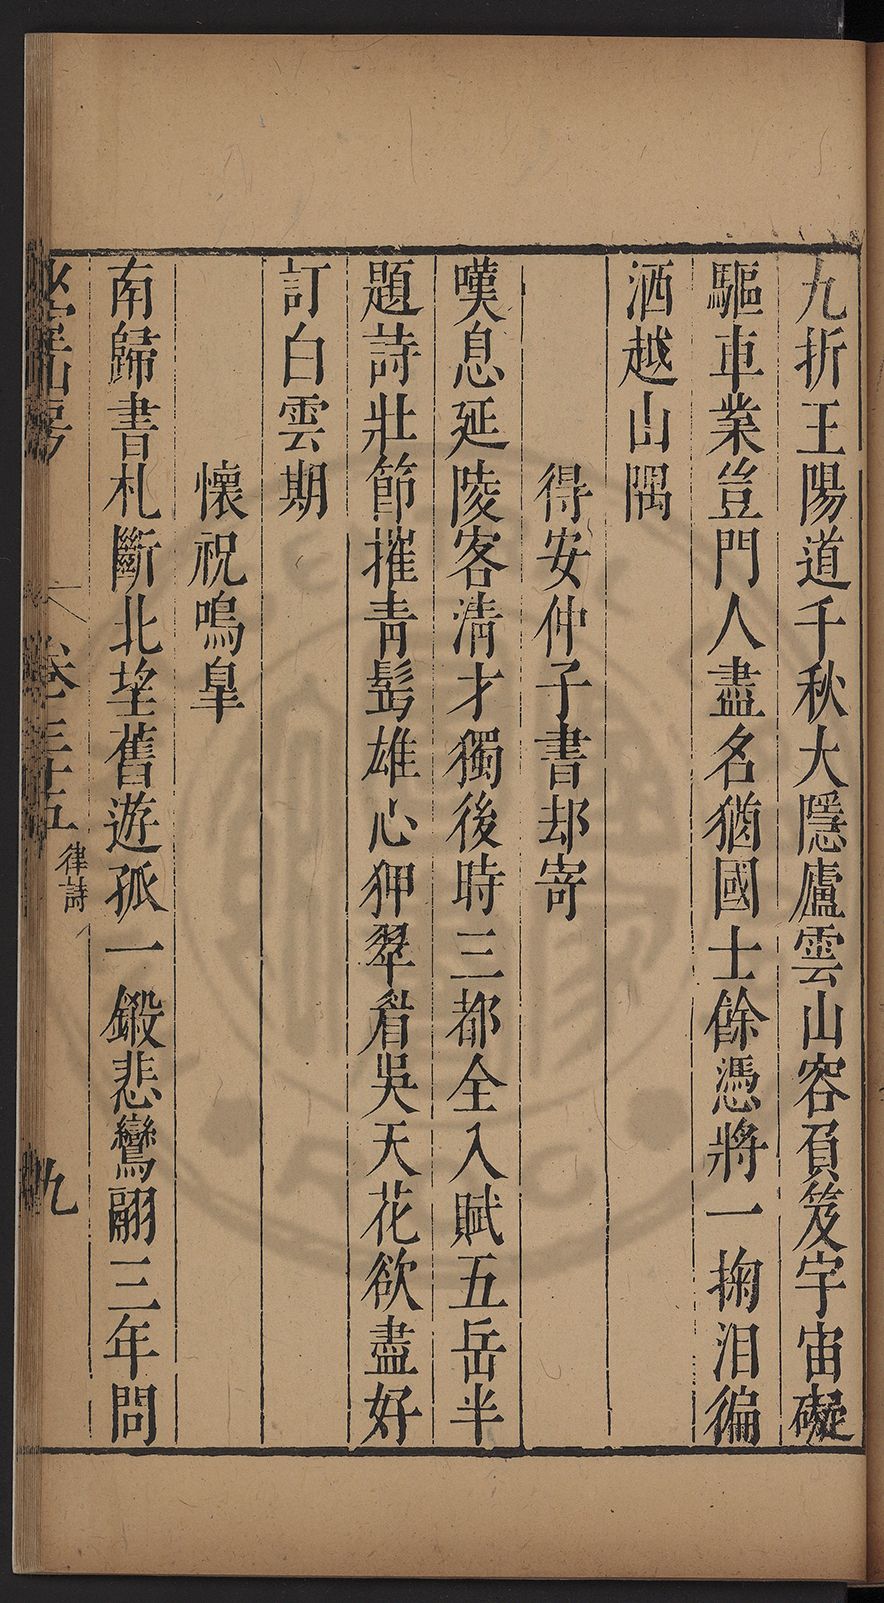 九折王陽道千秋大隱廬雲山容負笈宇宙礙
驅車業豈門人盡名猶國士餘憑將一掬泪徧
洒越山隅
得安仲子書却寄
嘆息延陵客清才獨後時三都全入賦五岳半
題詩壯節摧青髩雄心狎翠眉吳天花欲盡好
訂白雲期
懷祝鳴臯
南歸書札斷北望舊遊孤一鍛悲鸞翮三年問
卷三十五
律詩
九